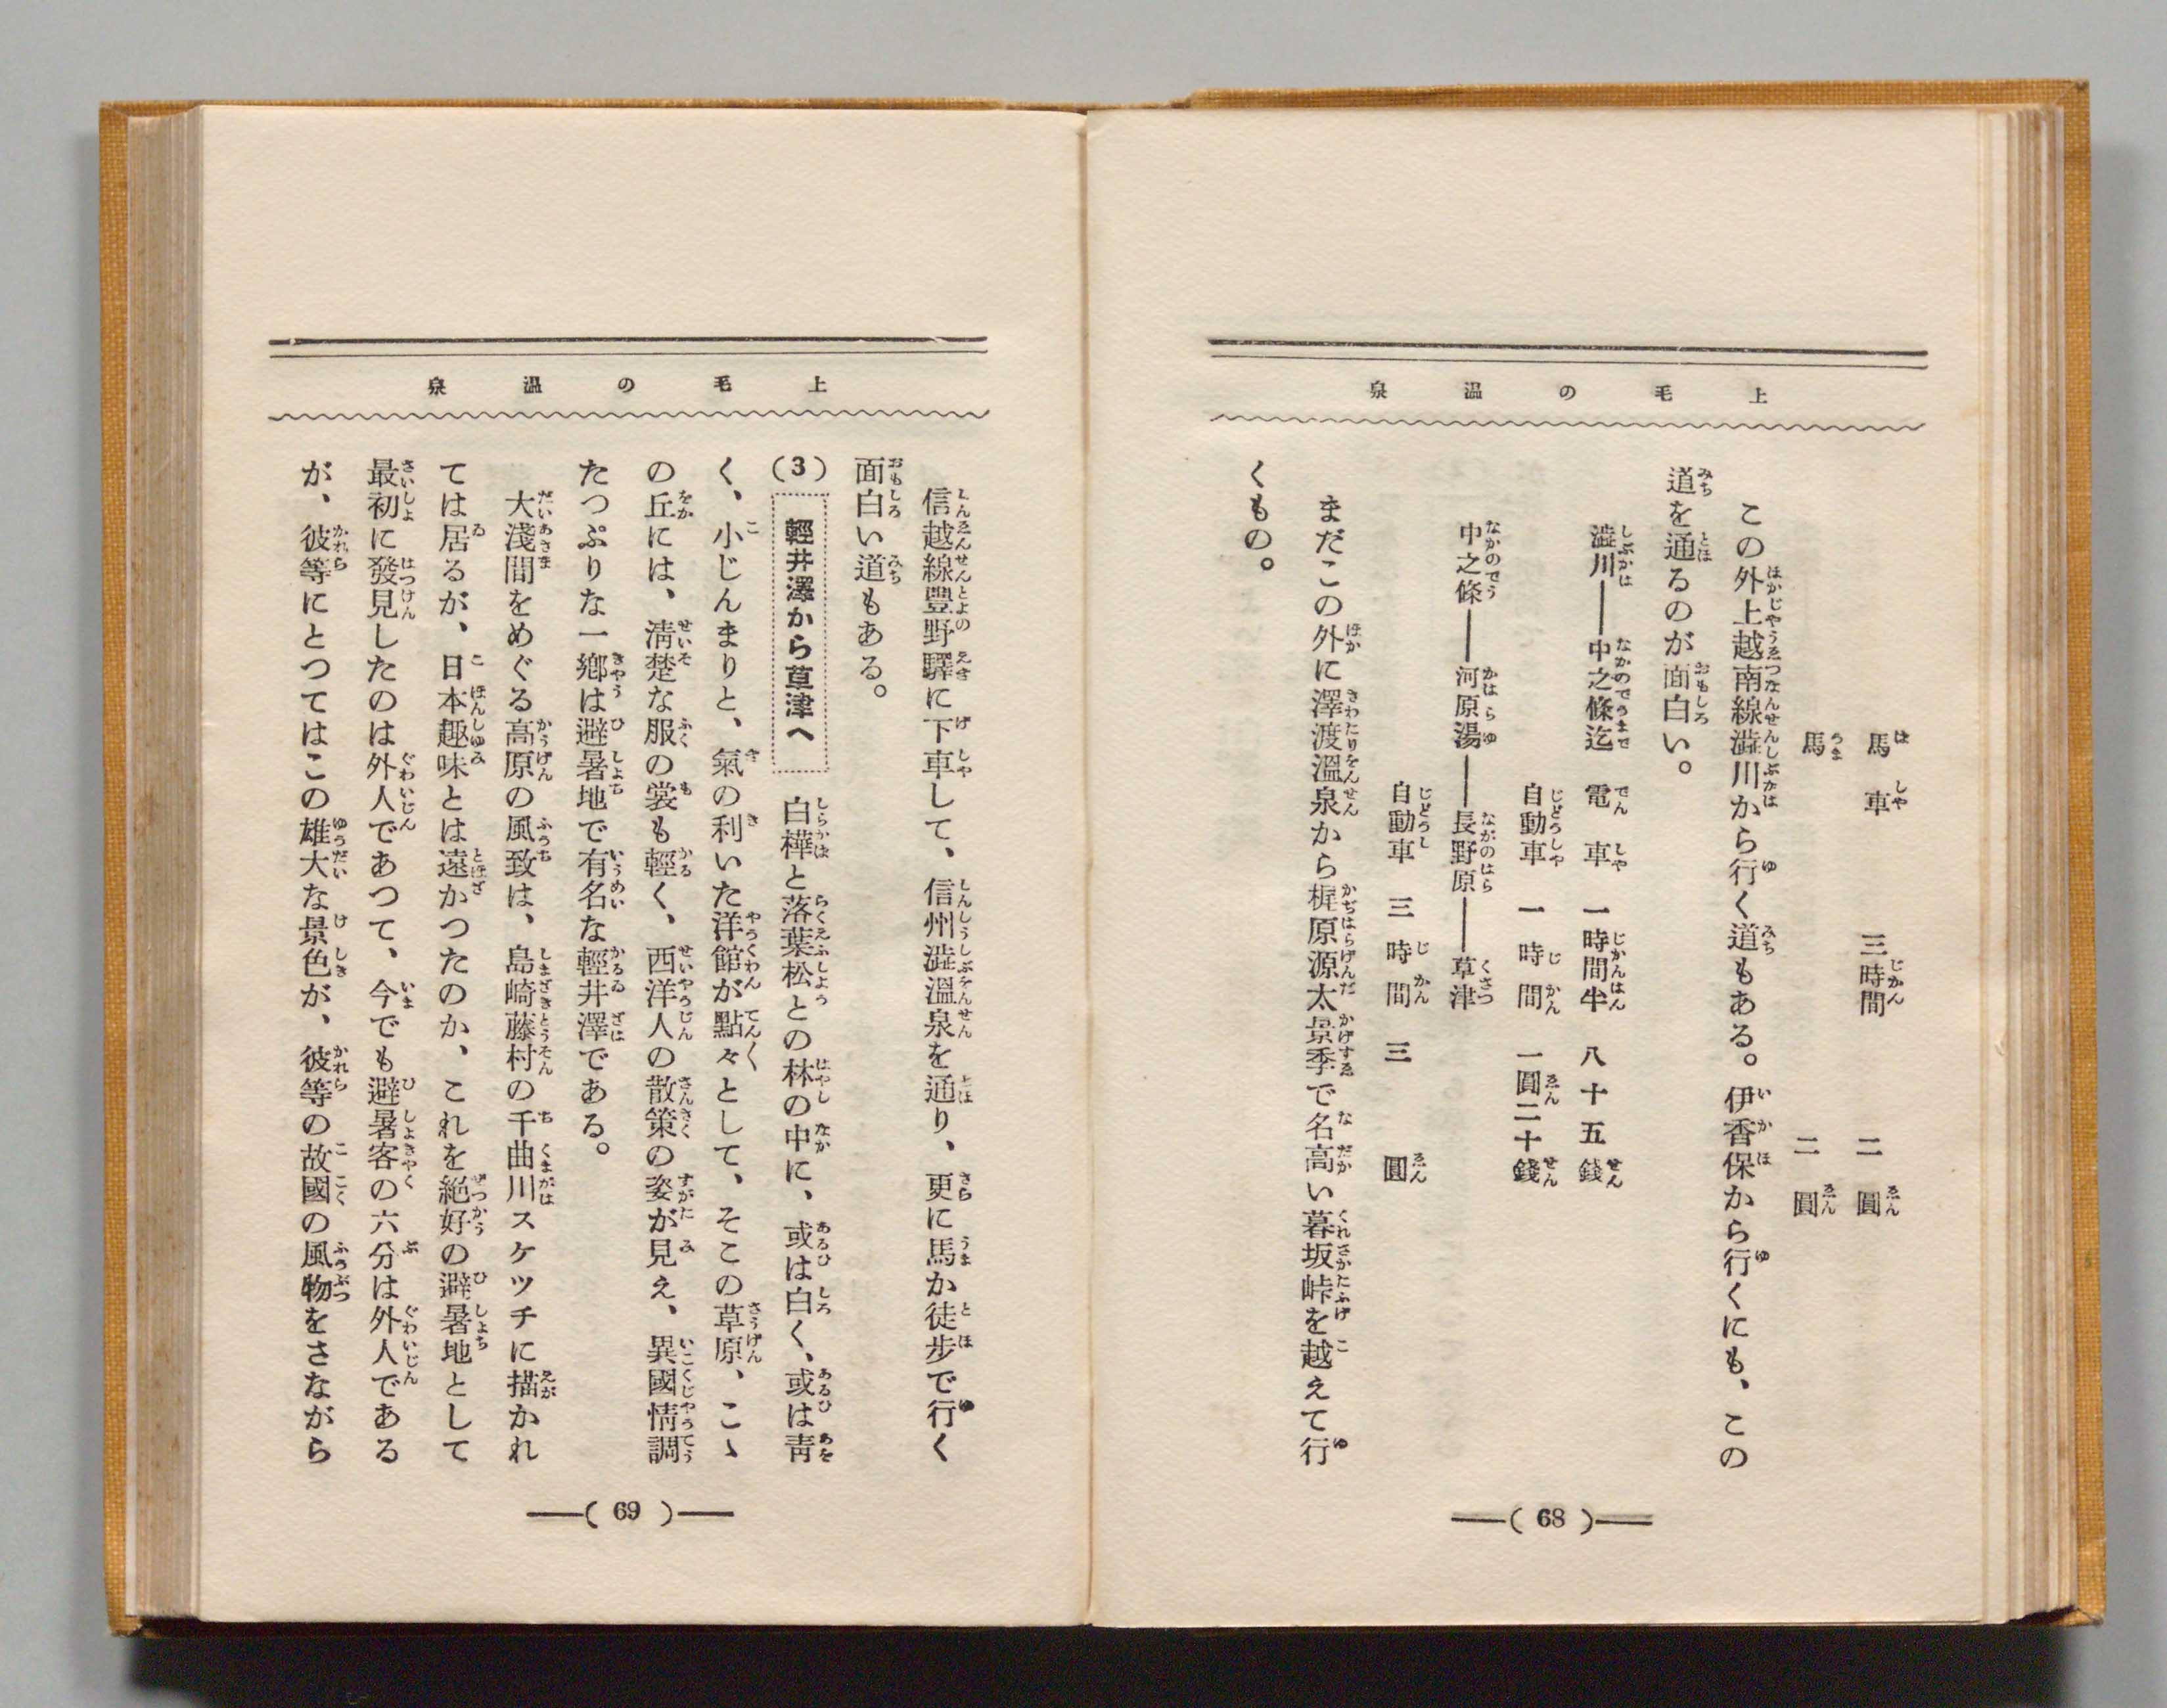 上毛の溫泉
馬車 三時間 二圓
馬 二圓
この外上越南線澁川から行く道もある。伊香保から行くにも、この
道を通るのが面白い。
澁川――中之條迄 電車 一時間半 八十五錢
自動車 一時間 一圓二十錢
中之條――河原湯――長野原――草津
自動車 三時間 三圓
まだこの外に澤渡溫泉から梶原源太景季で名高い暮坂峠を越えて行
くもの。
(68)
上毛の溫泉
信越線豐野驛に下車して、信州澁溫泉を通り、更に馬か徒步で行く
面白い道もある。
(3) 輕井澤から草津へ 白樺と落葉松との林の中に、或は白く、或は靑
く、小じんまりと、氣の利いた洋館が點々として、そこの草原、こゝ
の丘には、淸楚な服の裳も輕く、西洋人の散策の姿が見え、異國情調
たつぷりな一鄕は避暑地で有名な輕井澤である。
大淺間をめぐる高原の風致は、島崎藤村の千曲川スケツチに描かれ
ては居るが、日本趣味とは遠かつたのか、これを絕好の避暑地として
最初に發見したのは外人であつて、今でも避暑客の六分は外人である
が、彼等にとつてはこの雄大な景色が、彼等の故國の風物をさながら
(69)